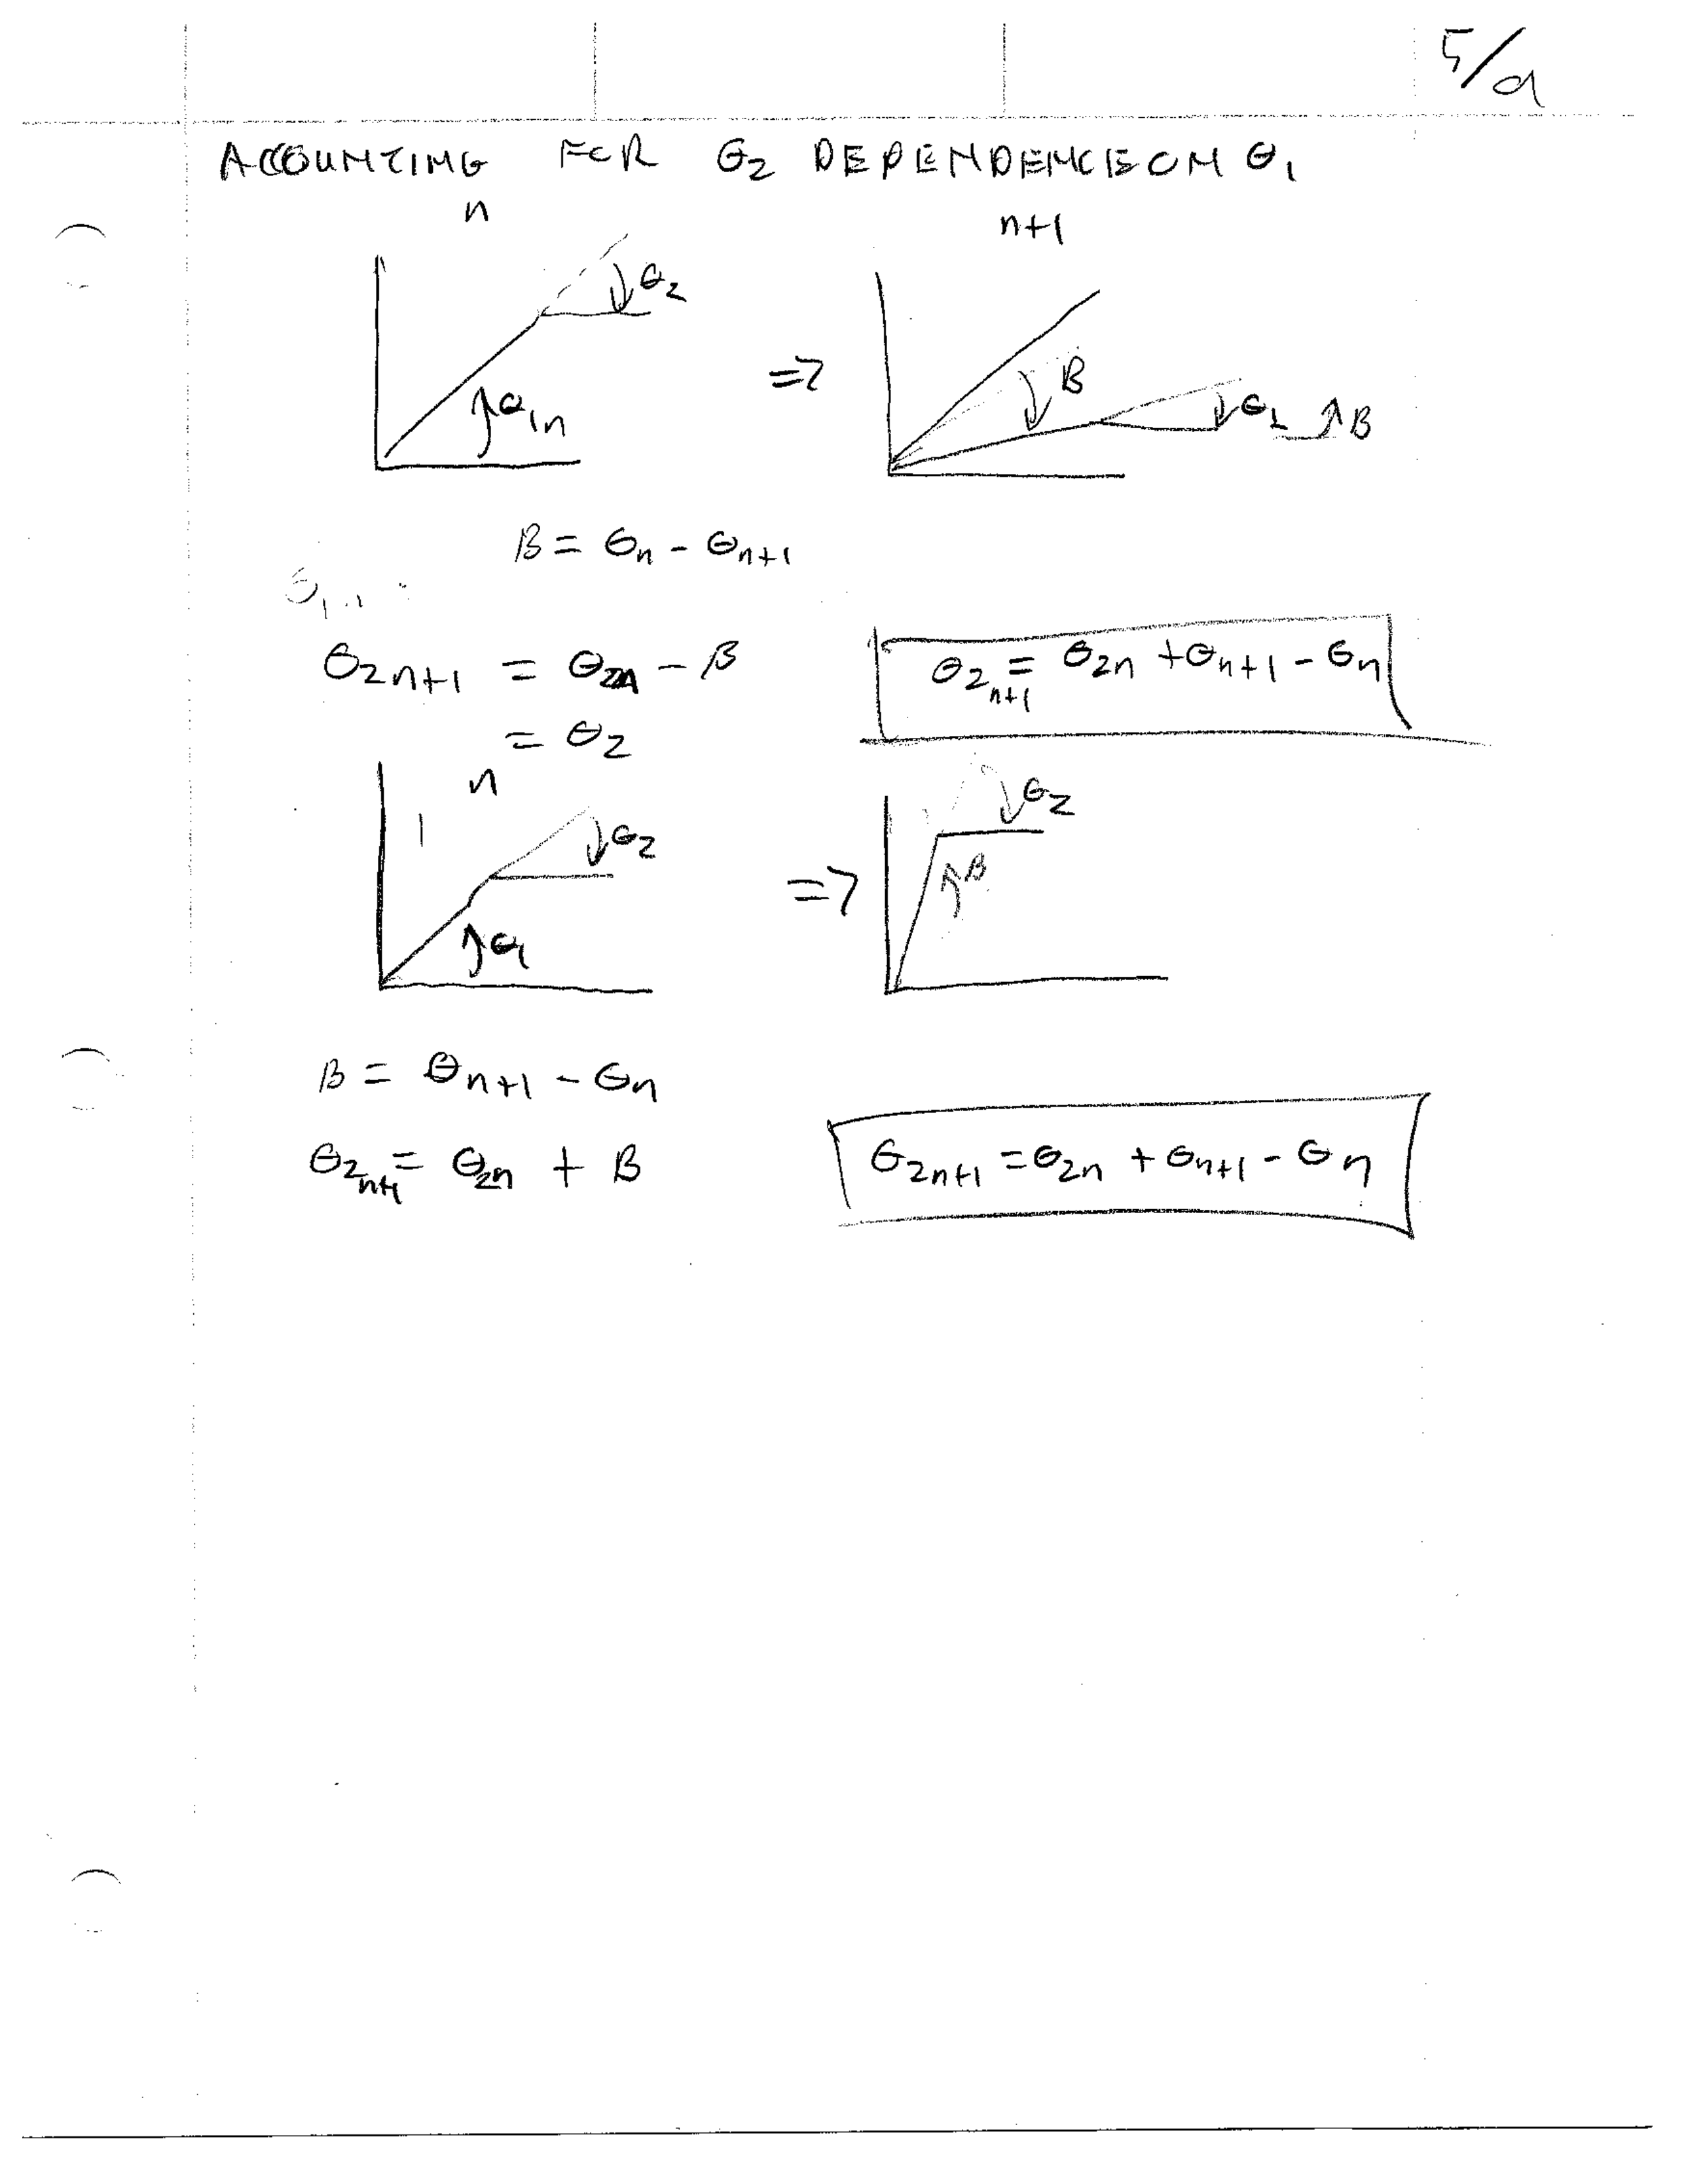 5/a
ACCOUNTING FOR θ2 DEPENDENCE ON θ1
n n+1
θ2
θ1n
=>
B
θ2 B
B = θn - θn+1
θ2n+1 = θ2n - B
= θ2
θ2n+1 = θ2n + θn+1 - θn
n
θ2
θ1
=>
θ2
B
B = θn+1 - θn
θ2n+1 = θ2n + B
θ2n+1 = θ2n + θn+1 - θn